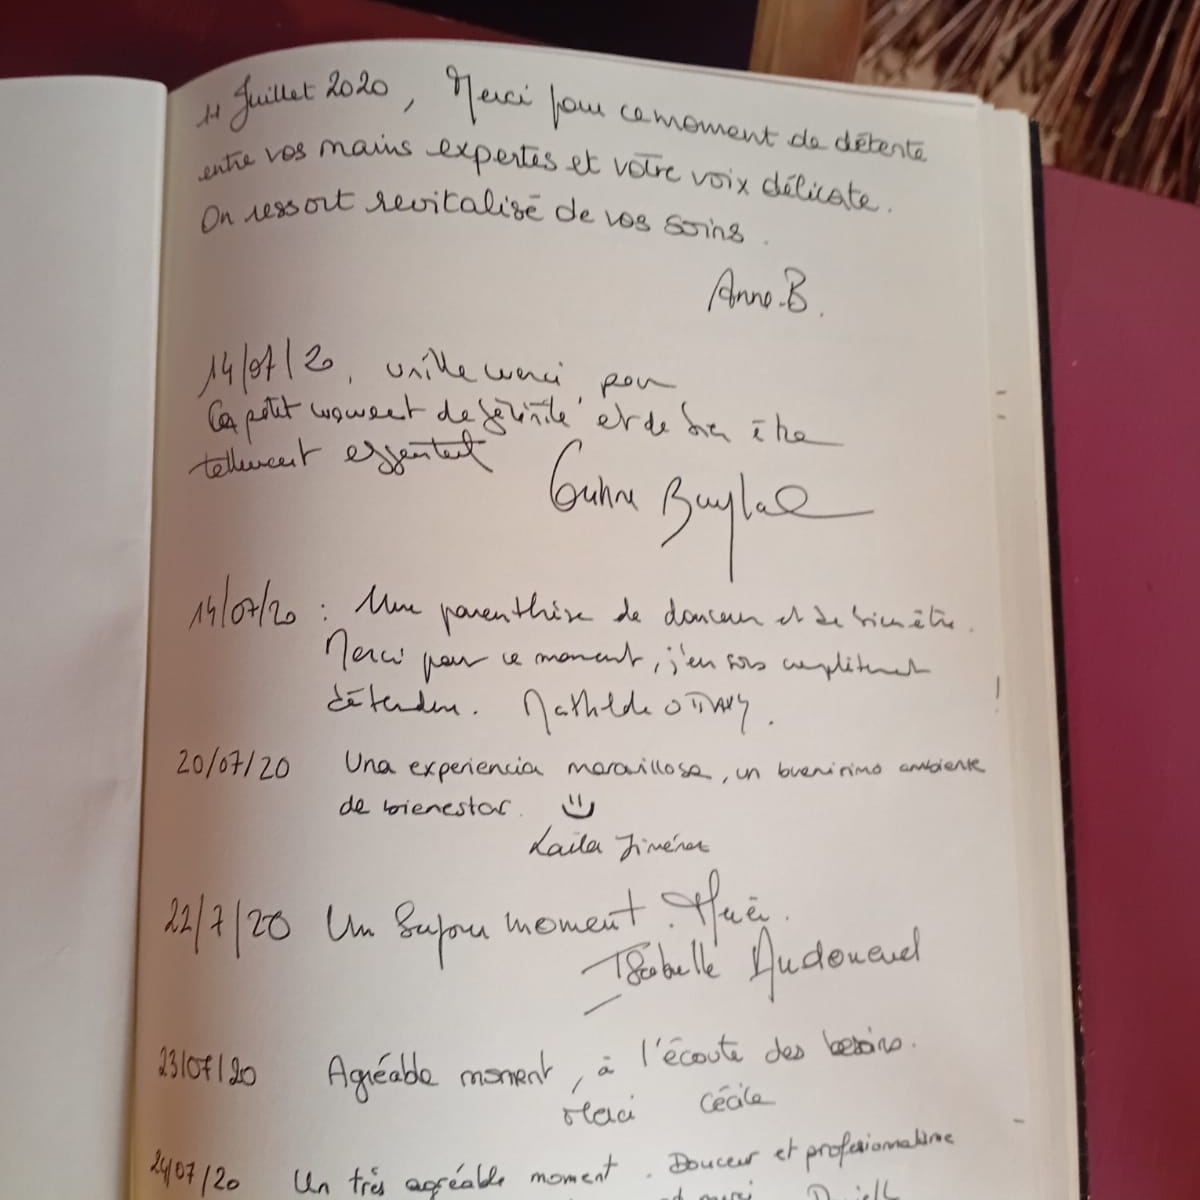 11 Juillet 2020, Merci pour ce moment de détente
entre vos mains expertes et votre voix délicate.
On ressort revitalisé de vos soins.
Anne.B.
14/07/20, mille merci pour
ce petit moment de sérénité et de bien être
tellement essentiel
14/07/20 : Une parenthèse de douceur et de bien être.
Merci pour ce moment, j'en sors complètement
détendue. Mathilde
20/07/20 Una experiencia maravillosa, un buenisimo ambiente
de bienestar.
Laila Jiménez
22/7/20 Un moment. Merci.
Isabelle
23/07/20 Agréable moment, à l'écoute des besoins.
Merci Cécile
24/07/20 Un très agréable moment. Douceur et professionnalisme